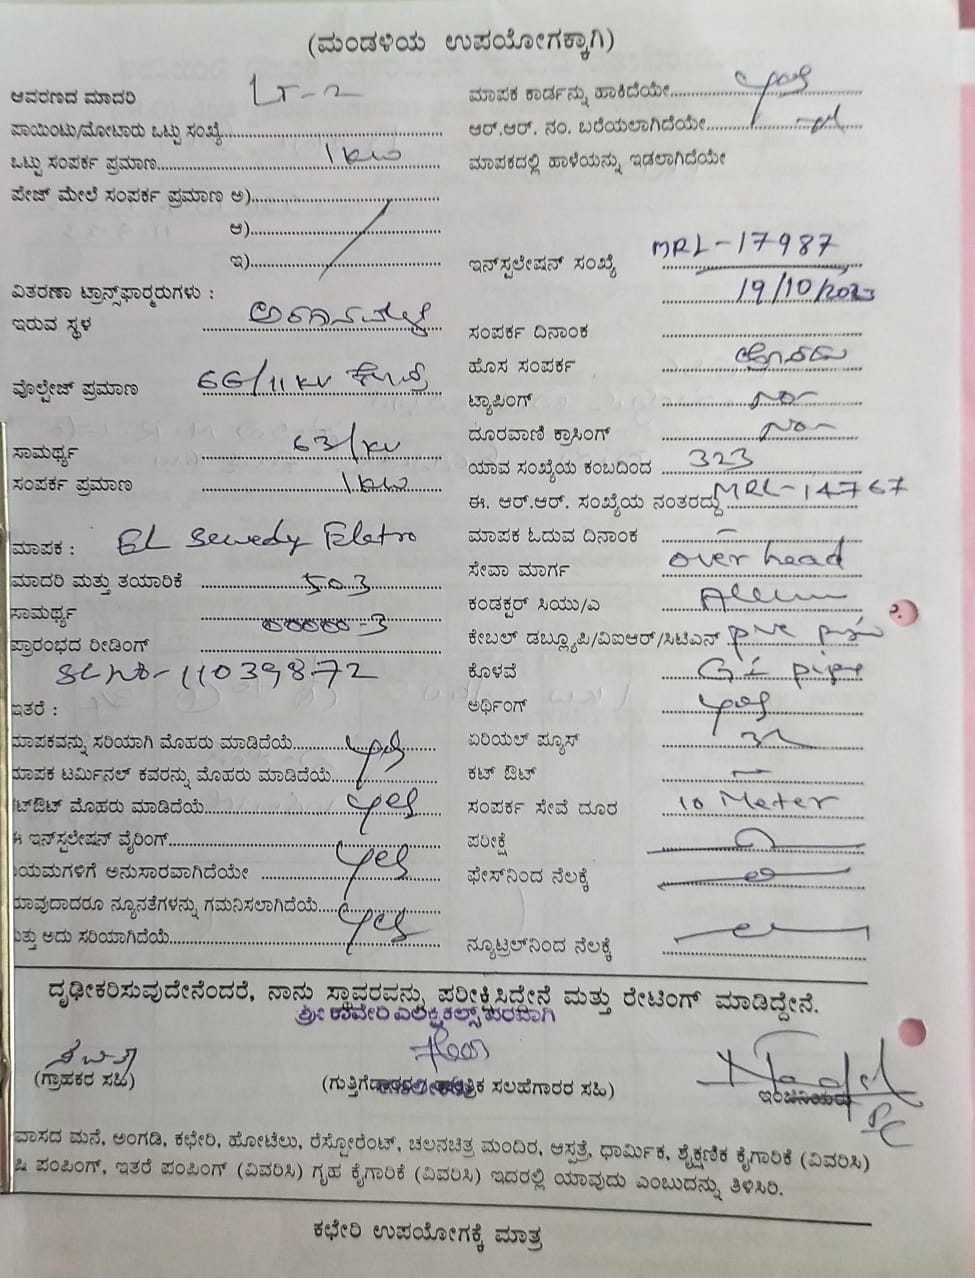 (ಮಂಡಳಿಯ ಉಪಯೋಗಕ್ಕಾಗಿ)
ಆವರಣದ ಮಾದರಿ LT-2
ಪಾಯಿಂಟು/ಮೋಟಾರು ಒಟ್ಟು ಸಂಖ್ಯೆ
ಒಟ್ಟು ಸಂಪರ್ಕ ಪ್ರಮಾಣ 1 KW
ಪೇಜ್ ಮೇಲೆ ಸಂಪರ್ಕ ಪ್ರಮಾಣ ಅ)
ಆ)
ಇ)
ವಿತರಣಾ ಟ್ರಾನ್ಸ್‌ಫಾರ್‍ಮರುಗಳು :
ಇರುವ ಸ್ಥಳ
ವೊಲ್ಟೇಜ್ ಪ್ರಮಾಣ 66/11 KV
ಸಾಮರ್ಥ್ಯ 63/KV
ಸಂಪರ್ಕ ಪ್ರಮಾಣ 1 KW
ಮಾಪಕ : EL Sewedy Eletro
ಮಾದರಿ ಮತ್ತು ತಯಾರಿಕೆ 503
ಸಾಮರ್ಥ್ಯ 00000-3
ಪ್ರಾರಂಭದ ರೀಡಿಂಗ್
SL No-11039872
ಇತರೆ :
ಮಾಪಕವನ್ನು ಸರಿಯಾಗಿ ಮೊಹರು ಮಾಡಿದೆಯೆ yes
ಮಾಪಕ ಟರ್ಮಿನಲ್ ಕವರನ್ನು ಮೊಹರು ಮಾಡಿದೆಯೆ
ಟ್‌ಔಟ್ ಮೊಹರು ಮಾಡಿದೆಯೆ yes
ಈ ಇನ್‌ಸ್ಟಲೇಷನ್ ವೈರಿಂಗ್
ಯಮಗಳಿಗೆ ಅನುಸಾರವಾಗಿದೆಯೇ yes
ಯಾವುದಾದರೂ ನ್ಯೂನತೆಗಳನ್ನು ಗಮನಿಸಲಾಗಿದೆಯೆ
ಮತ್ತು ಅದು ಸರಿಯಾಗಿದೆಯೆ yes
ಮಾಪಕ ಕಾರ್ಡನ್ನು ಹಾಕಿದೆಯೇ yes
ಆರ್.ಆರ್. ನಂ. ಬರೆಯಲಾಗಿದೆಯೇ
ಮಾಪಕದಲ್ಲಿ ಹಾಳೆಯನ್ನು ಇಡಲಾಗಿದೆಯೇ
ಇನ್‌ಸ್ಟಲೇಷನ್ ಸಂಖ್ಯೆ MRL-17987
19/10/2023
ಸಂಪರ್ಕ ದಿನಾಂಕ
ಹೊಸ ಸಂಪರ್ಕ
ಟ್ಯಾಪಿಂಗ್ No
ದೂರವಾಣಿ ಕ್ರಾಸಿಂಗ್ No
ಯಾವ ಸಂಖ್ಯೆಯ ಕಂಬದಿಂದ 323
ಈ. ಆರ್.ಆರ್. ಸಂಖ್ಯೆಯ ನಂತರದ್ದು MRL-14767
ಮಾಪಕ ಓದುವ ದಿನಾಂಕ -
ಸೇವಾ ಮಾರ್ಗ over head
ಕಂಡಕ್ಟರ್ ಸಿಯು/ಎ
ಕೇಬಲ್ ಡಬ್ಲ್ಯೂಪಿ/ವಿಐಆರ್/ಸಿಟಿಎಸ್
ಕೊಳವೆ GI pipe
ಅರ್ಥಿಂಗ್ yes
ಏರಿಯಲ್ ಫ್ಯೂಸ್
ಕಟ್ ಔಟ್ -
ಸಂಪರ್ಕ ಸೇವೆ ದೂರ 10 Meter
ಪರೀಕ್ಷೆ
ಫೇಸ್‌ನಿಂದ ನೆಲಕ್ಕೆ
ನ್ಯೂಟ್ರಲ್‌ನಿಂದ ನೆಲಕ್ಕೆ
ದೃಢೀಕರಿಸುವುದೇನೆಂದರೆ, ನಾನು ಸ್ಥಾವರವನ್ನು ಪರೀಕ್ಷಿಸಿದ್ದೇನೆ ಮತ್ತು ರೇಟಿಂಗ್ ಮಾಡಿದ್ದೇನೆ.
ಶ್ರೀ ಕಾವೇರಿ ಎಲೆಕ್ಟ್ರಿಕಲ್ಸ್ ಪರವಾಗಿ
(ಗ್ರಾಹಕರ ಸಹಿ) ಸಲಹೆಗಾರರ ಸಹಿ) ಇಂಜಿನಿಯರು
ವಾಸದ ಮನೆ, ಅಂಗಡಿ, ಕಛೇರಿ, ಹೋಟೆಲು, ರೆಸ್ಟೋರೆಂಟ್, ಚಲನಚಿತ್ರ ಮಂದಿರ, ಆಸ್ಪತ್ರೆ, ಧಾರ್ಮಿಕ, ಶೈಕ್ಷಣಿಕ ಕೈಗಾರಿಕೆ (ವಿವರಿಸಿ)
ಷಿ ಪಂಪಿಂಗ್, ಇತರೆ ಪಂಪಿಂಗ್ (ವಿವರಿಸಿ) ಗೃಹ ಕೈಗಾರಿಕೆ (ವಿವರಿಸಿ) ಇದರಲ್ಲಿ ಯಾವುದು ಎಂಬುದನ್ನು ತಿಳಿಸಿರಿ.
ಕಛೇರಿ ಉಪಯೋಗಕ್ಕೆ ಮಾತ್ರ